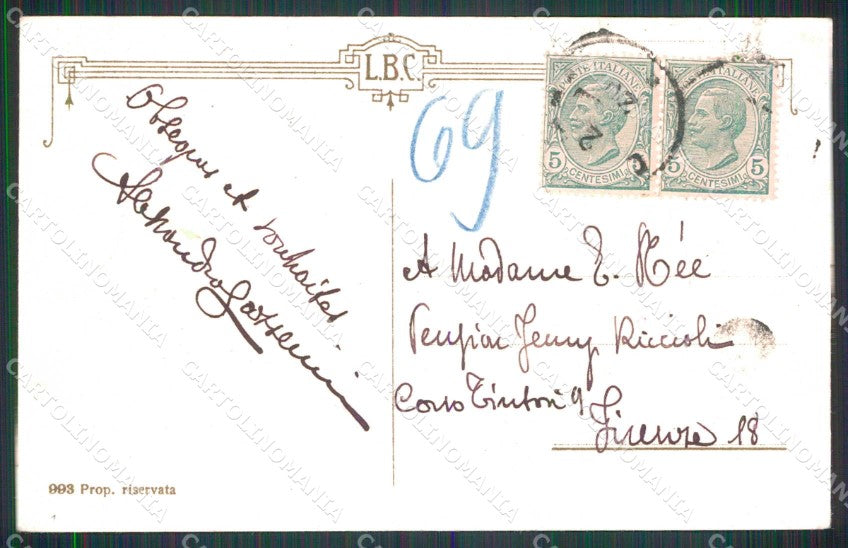 L.B.C.
69
POSTE ITALIANE
5 5
CENTESIMI
POSTE ITALIANE
5 5
CENTESIMI
Obsequis et souhaites
Alessandro
A Madame T. Née
Pension Jenny Riccioli
Corso Tintori 9
Firenze 18
993 Prop. riservata
CARTOLINOMANIA